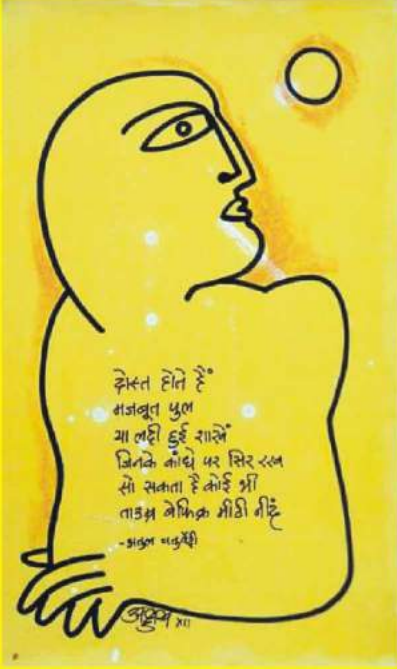 दोस्त होते हैं
मजबूत पुल
या लदी हुई शाखें
जिनके कांधे पर सिर रख
सो सकता है कोई भी
ताउम्र बेफिक्र मीठी नींद
-अतुल चतुर्वेदी